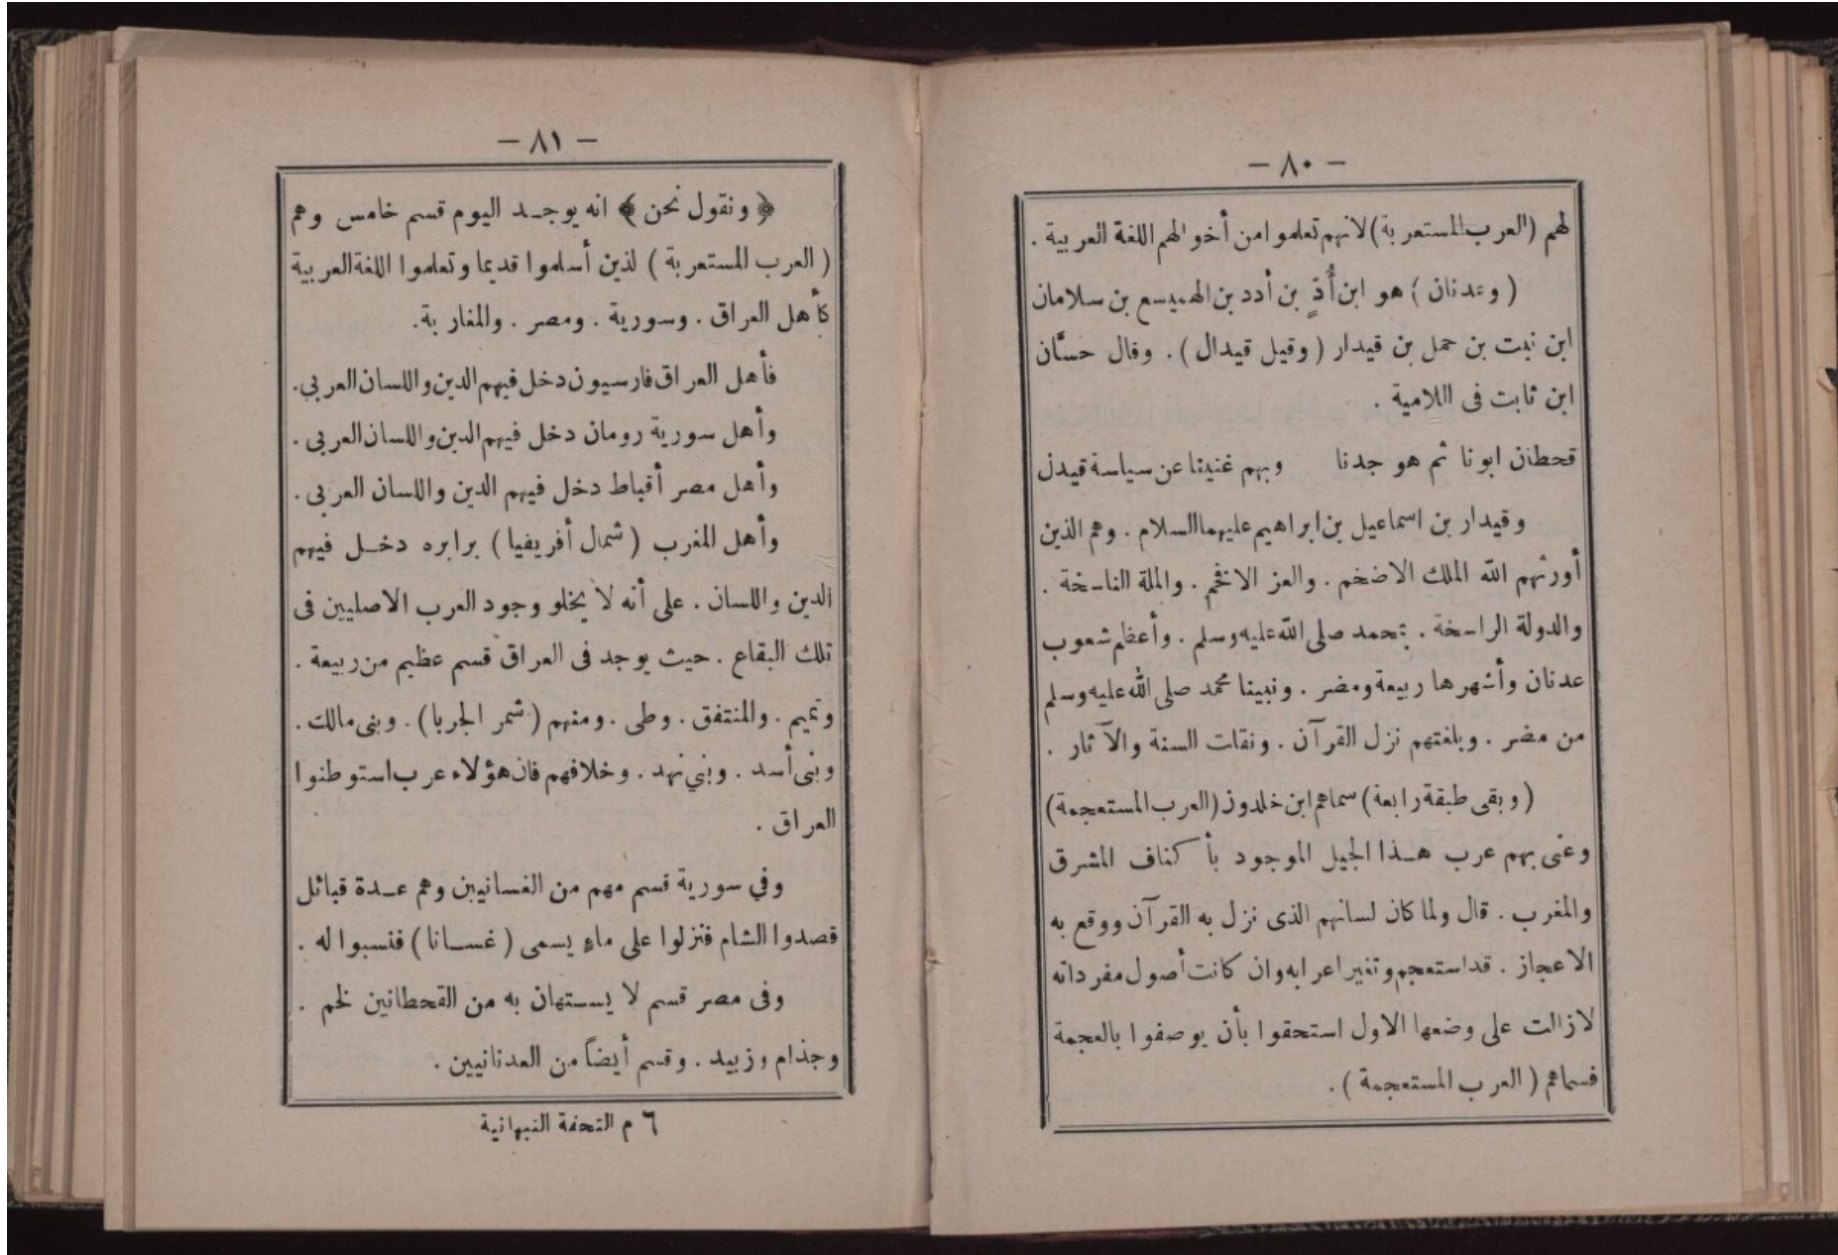 — ٨٠ —
لهم (العرب المستعربة) لانهم تعلموا من أخوالهم اللغة العربية .
( وعدنان ) هو ابن أُدٍّ بن أدد بن الهميسع بن سلامان
ابن نبت بن حمل بن قيدار ( وقيل قيدال ) . وقال حسَّان
ابن ثابت فى اللامية .
قحطان ابونا ثم هو جدنا وبهم غنينا عن سياسة قيدل
وقيدار بن اسماعيل بن ابراهيم عليهما السلام . وهم الذين
أورثهم الله الملك الاضخم . والعز الافخم . والملة الناسخة .
والدولة الراسخة . بمحمد صلى الله عليه وسلم . وأعظم شعوب
عدنان وأشهرها ربيعة ومضر . ونبينا محمد صلى الله عليه وسلم
من مضر . وبلغتهم نزل القرآن . ونقلت السنة والآثار .
( وبقى طبقة رابعة ) سماهم ابن خلدون ( العرب المستعجمة )
وعنى بهم عرب هـذا الجيل الموجود بأكناف المشرق
والمغرب . قال ولما كان لسانهم الذى نزل به القرآن ووقع به
الاعجاز . قد استعجم وتغير اعرابه وان كانت أصول مفرداته
لازالت على وضعها الاول استحقوا بأن يوصفوا بالعجمة
فسماهم ( العرب المستعجمة ) .
— ٨١ —
﴿ ونقول نحن ﴾ انه يوجـد اليوم قسم خامس وهم
( العرب المستعربة ) لذين أسلموا قديما وتعلموا اللغة العربية
كأهل العراق . وسورية . ومصر . والمغاربة .
فأهل العراق فارسيون دخل فيهم الدين واللسان العربي .
وأهل سورية رومان دخل فيهم الدين واللسان العربى .
وأهل مصر أقباط دخل فيهم الدين واللسان العربى .
وأهل المغرب ( شمال أفريقيا ) برابره دخـل فيهم
الدين واللسان . على أنه لا يخلو وجود العرب الاصليين فى
تلك البقاع . حيث يوجد فى العراق قسم عظيم من ربيعة .
وتميم . والمنتفق . وطى . ومنهم ( شمر الجربا ) . وبنى مالك .
وبنى أسد . وبني نهد . وخلافهم فان هؤلاء عرب استوطنوا
العراق .
وفي سورية قسم مهم من الغسانيين وهم عـدة قبائل
قصدوا الشام فنزلوا على ماء يسمى ( غسـانا ) فنسبوا له .
وفى مصر قسم لا يسـتهان به من القحطانين لخم .
وجذام وزبيد . وقسم أيضاً من العدنانيين .
٦ م التحفة النبهانية